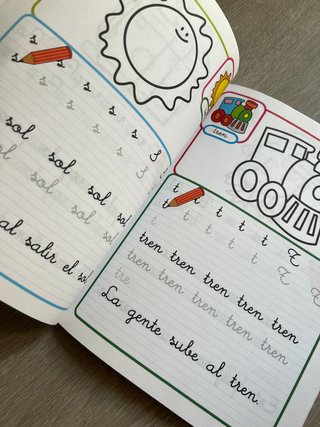 s s s s s
s s s s S
sol sol sol
sol sol sol sol
al salir el sol
tren
t t t t t
t t t t t t T
tren tren tren tren tren
tren tren tren tren tren
tre
La gente sube al tren.